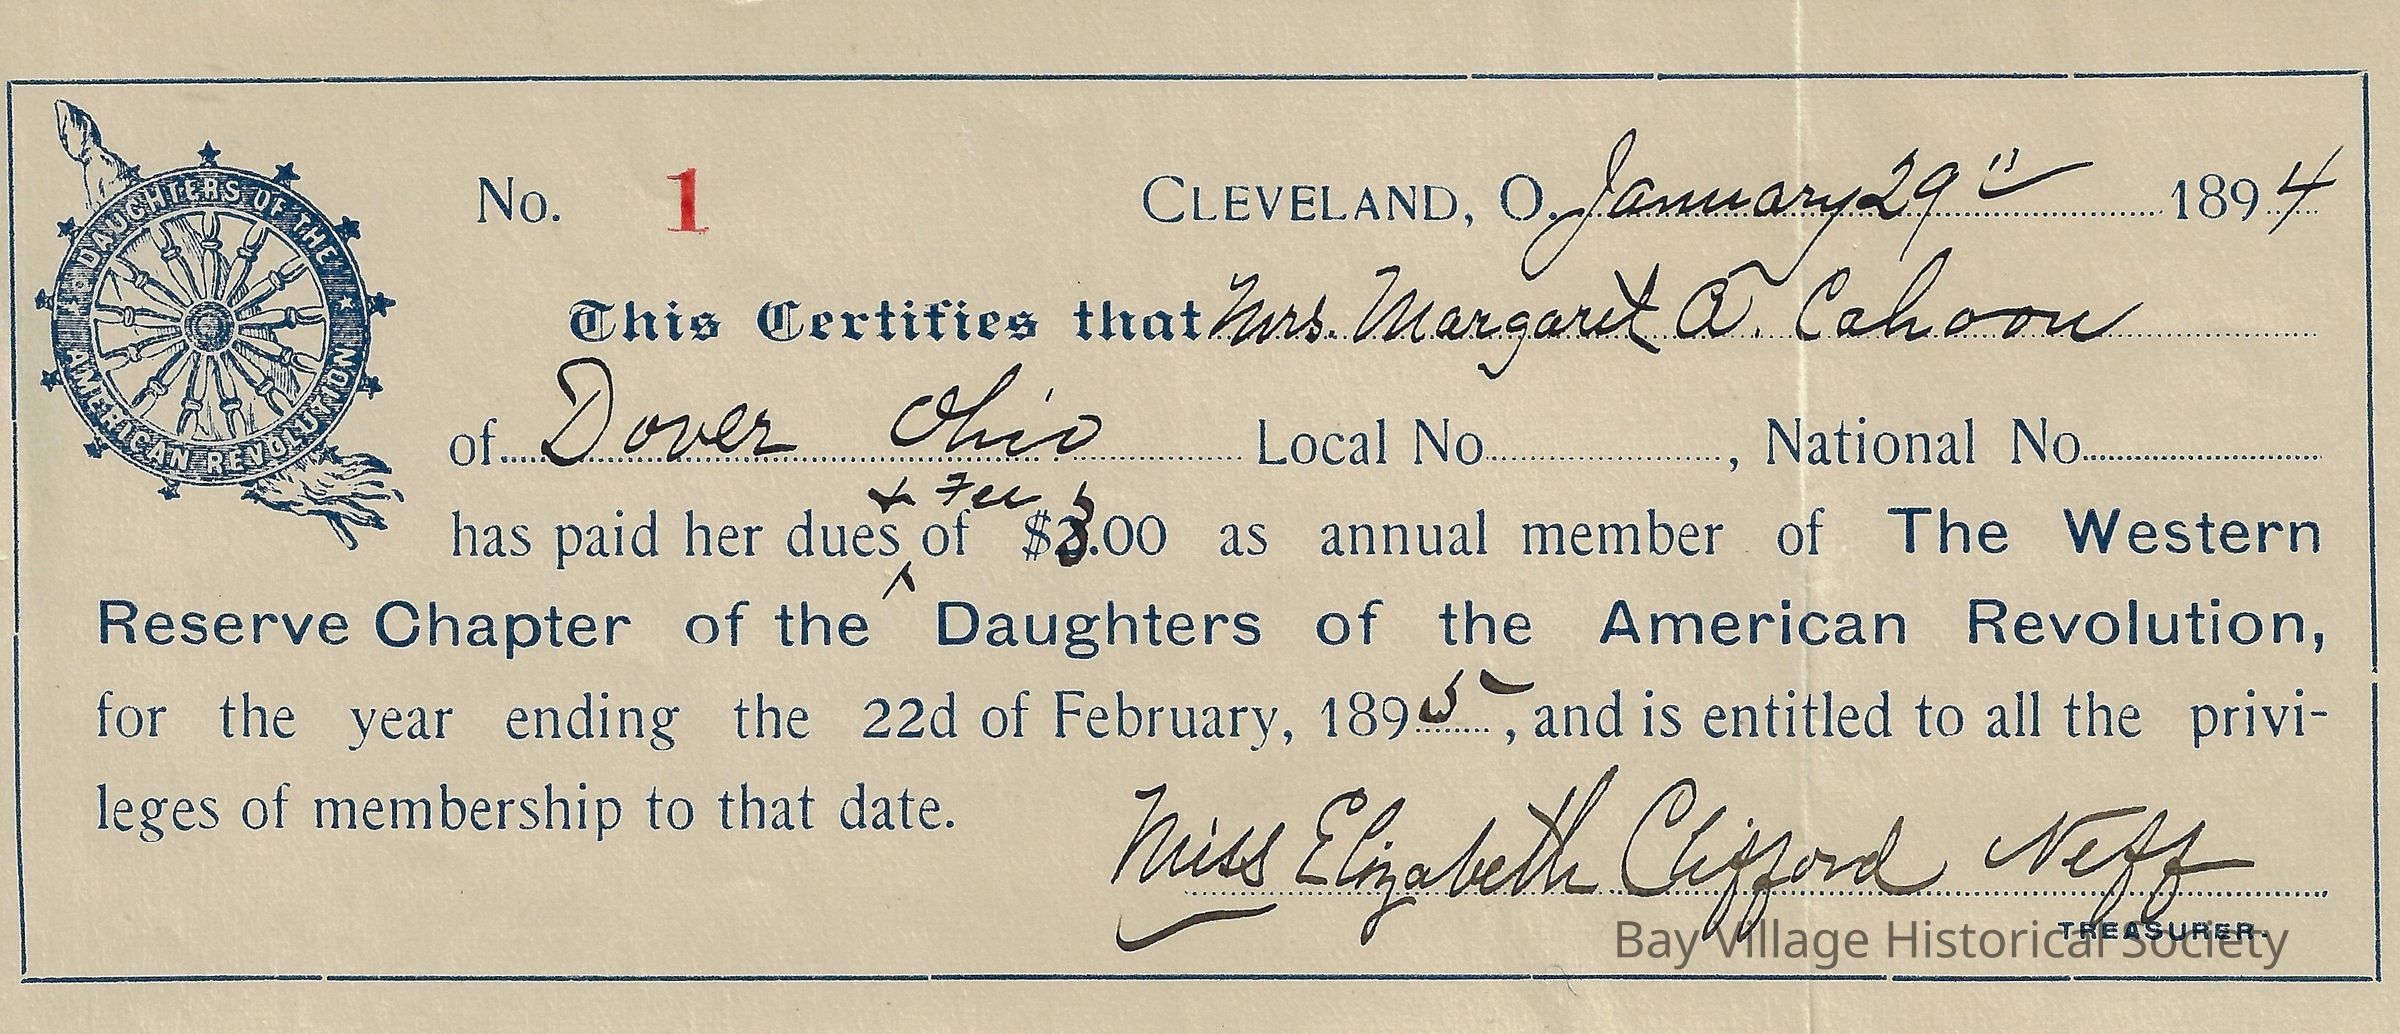 DAUGHTERS OF THE AMERICAN REVOLUTION
No. 1 CLEVELAND, O. January 29" 1894
This Certifies that Mrs. Margaret A. Cahoon
of Dover Ohio Local No. , National No.
+ Fee
has paid her dues ^ of $3.00 as annual member of The Western
Reserve Chapter of the Daughters of the American Revolution,
for the year ending the 22d of February, 1895, and is entitled to all the privi-
leges of membership to that date.
Miss Elizabeth Clifford Neff
TREASURER.
Bay Village Historical Society